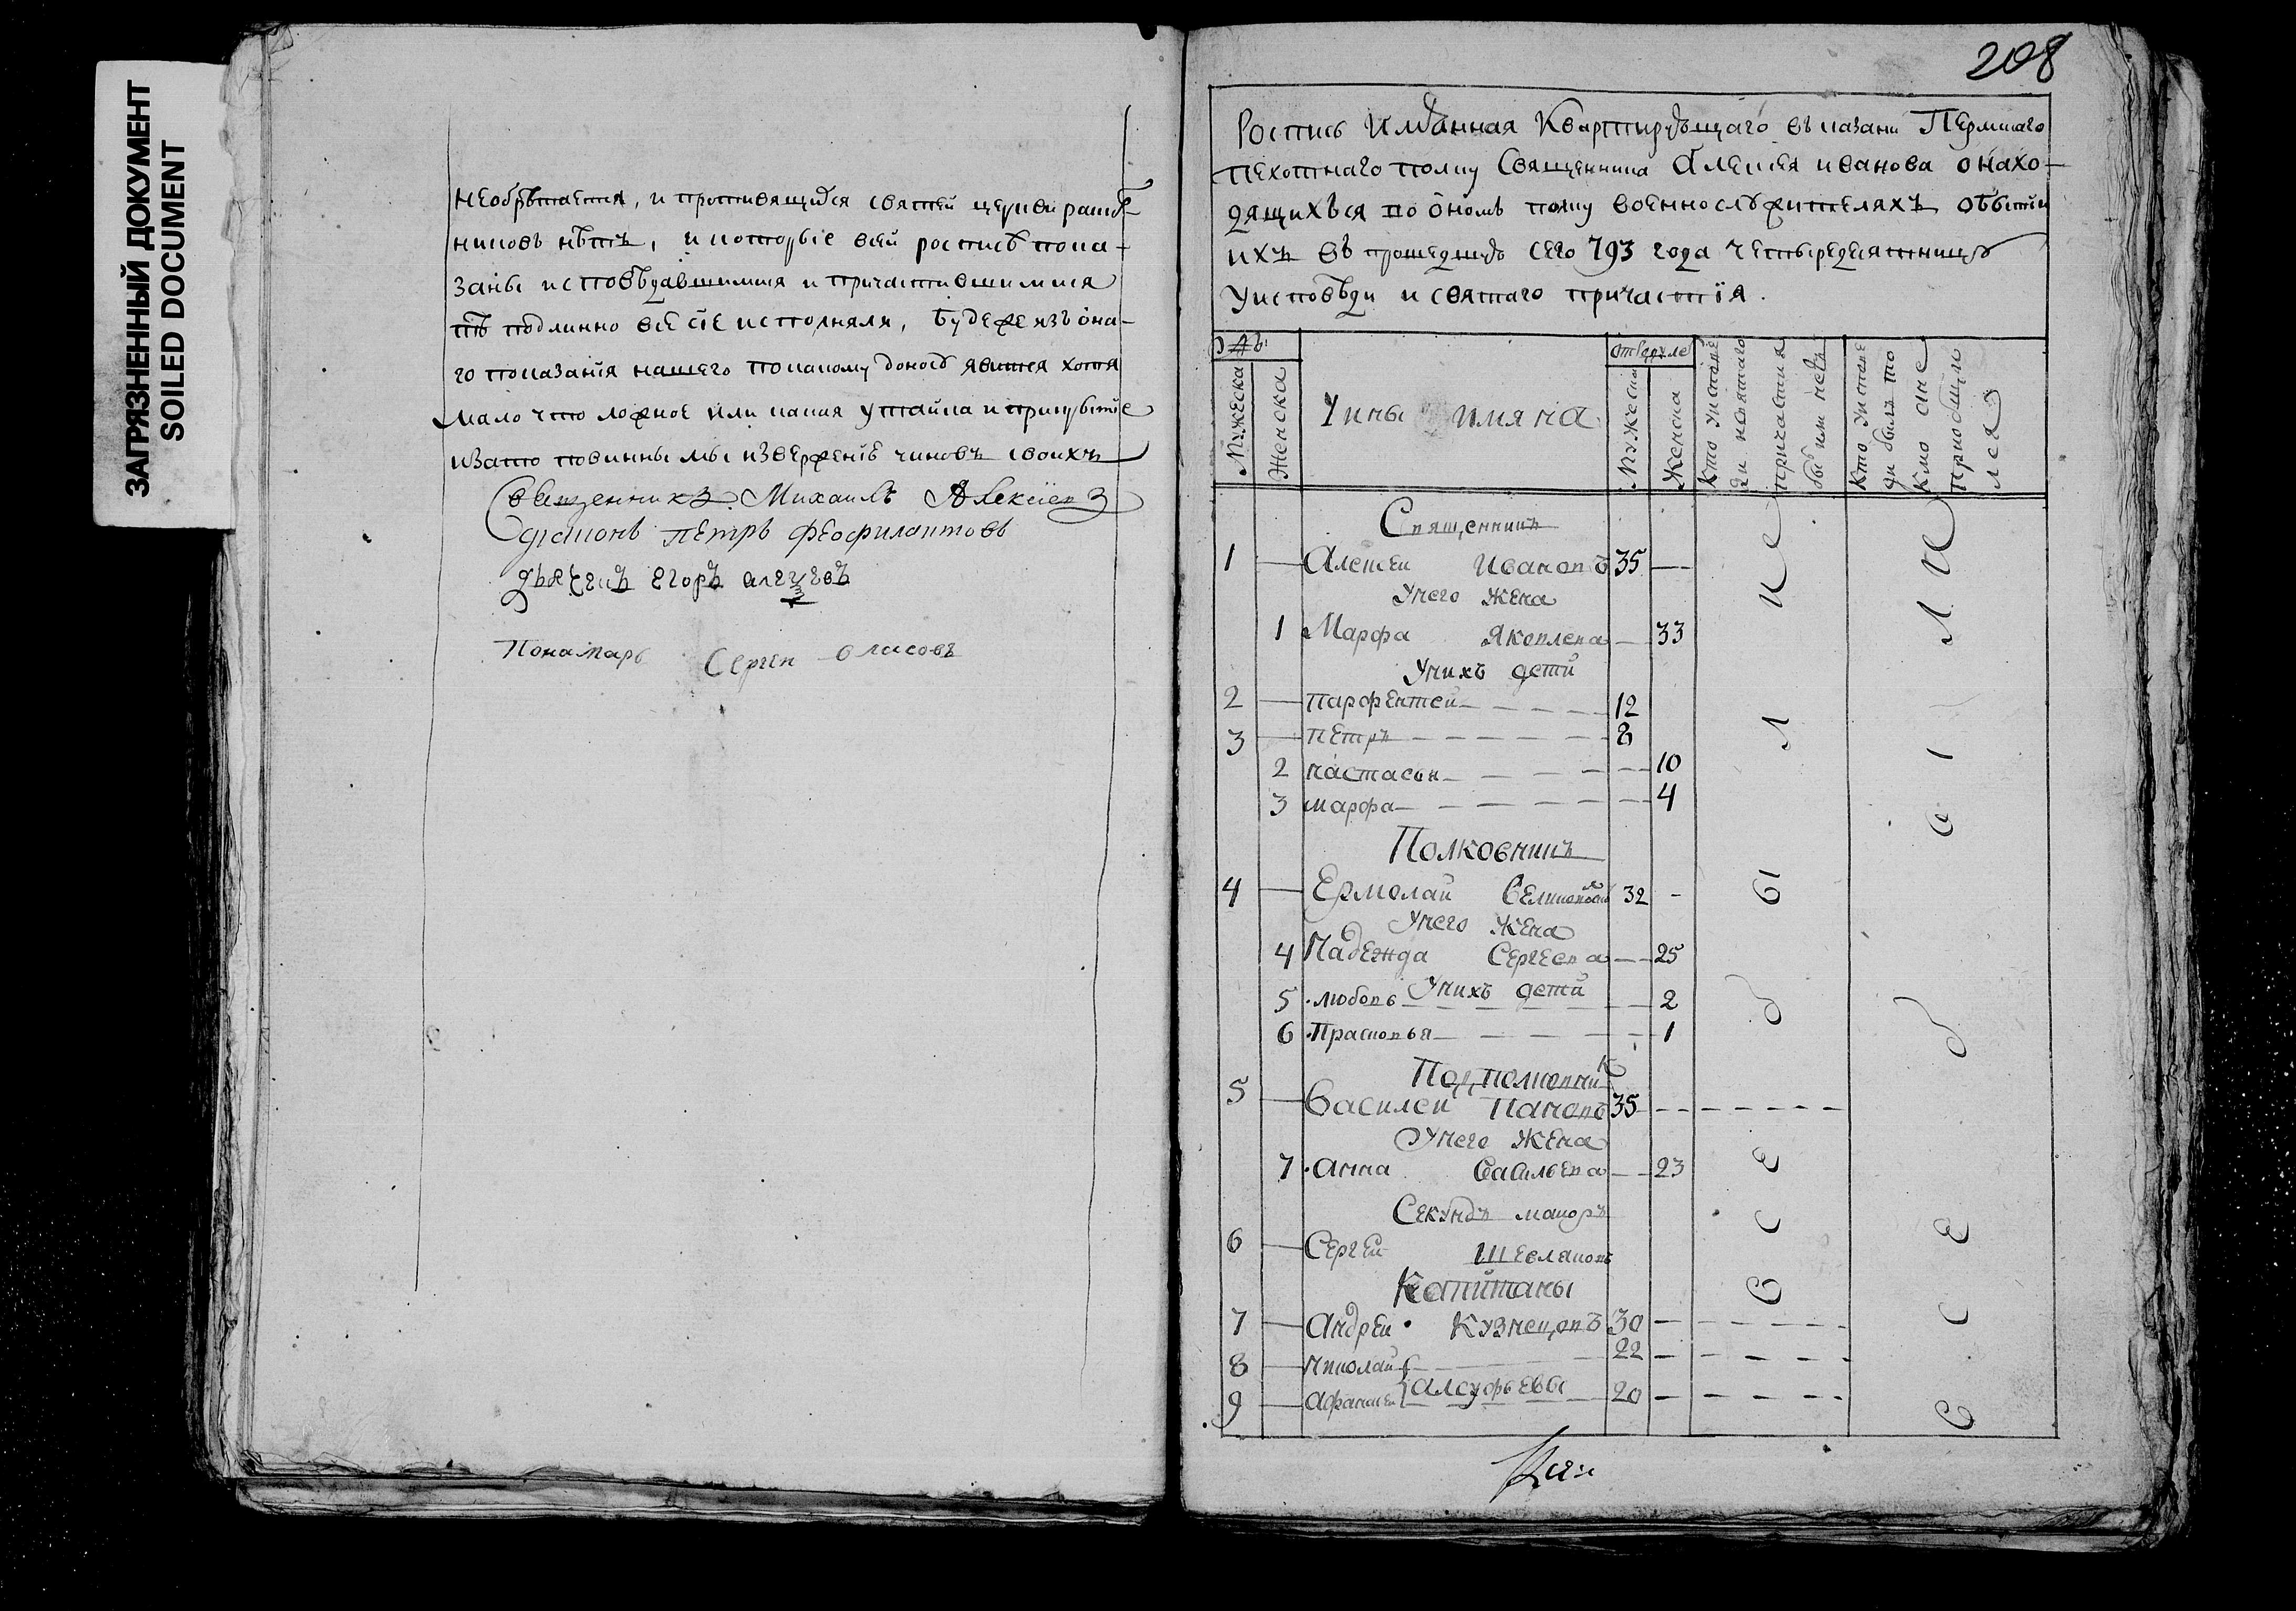 ЗАГРЯЗНЕННЫЙ ДОКУМЕНТ
SOILED DOCUMENT
необрѣтается, и противящихся святей церкви раскол-
никовъ нѣтъ, и которые всей росписи пока-
заны исповѣдавшимися и причастившимися
тѣ подлинно все сїе исполняли, буде же изъ она-
го показанїя нашего покакому доносу явится хотя
мало что ложное или какая утайка и прикрытїе
изато повинны мы изверженїе чиновъ своихъ
Священникъ Михаилъ Алексїевъ
Дїаконъ Петръ Феофилактовъ
Дьячекъ Егоръ
Понамарь Сергеи Власовъ
208
Роспись Имянная Квартирующаго въ казани Пермскаго
пехотнаго полку Священника Алексея иванова о нахо-
дящихъся по ономъ полку военнослужителяхъ обытии
ихъ въ прошедшую сего 793 года четыредесятницу
у исповѣди и святаго причастїя.
Мужеска
Женска
Чины имяна
Мужеска
Женска
Кто у исповѣ
ди и святаго
причастия
был или нетъ
Кто у испове
ди былъ то
кмо а не
приобщил
лся
Священникъ
1 Алексеи Ивановъ 35
У него жена
1 Марфа Яковлева 33
У нихъ дети
2 Парфентей 12
3 Петръ 8
2 настасья 10
3 марфа 4
Полковникъ
4 Ермолаи 32
У него жена
4 Надежда Сергеева 25
У нихъ дети
5 любовь 2
6 Прасковья 1
Подполковник
5 Василеи Пановъ 35
У него жена
7 Анна Васильева 23
Секундъ маиоръ
6 Сергеи Шевляковъ
Капитаны
7 Андреи Кузнецовъ 30
8 Николаи 22
9 Афанасеи Алсуфьевы 20
Все были
Все были